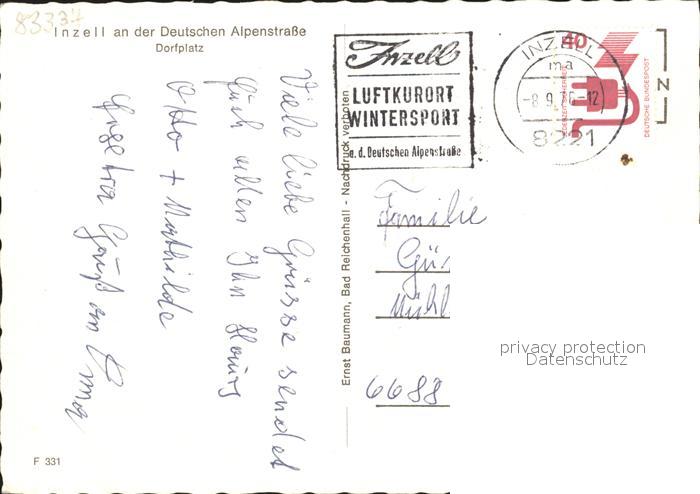 83337
Inzell an der Deutschen Alpenstraße
Dorfplatz
Viele liebe Grüsse sendet
Euch allen Ihr
Otto + Mathilde
Gruß an Oma
F 331
Ernst Baumann, Bad Reichenhall - Nachdruck verboten
Inzell
LUFTKURORT
WINTERSPORT
a.d. Deutschen Alpenstraße
INZELL
ma
-8.9.76-12
8221
40
DEUTSCHE BUNDESPOST
N
Familie
Gü
Mühl
6688
privacy protection
Datenschutz